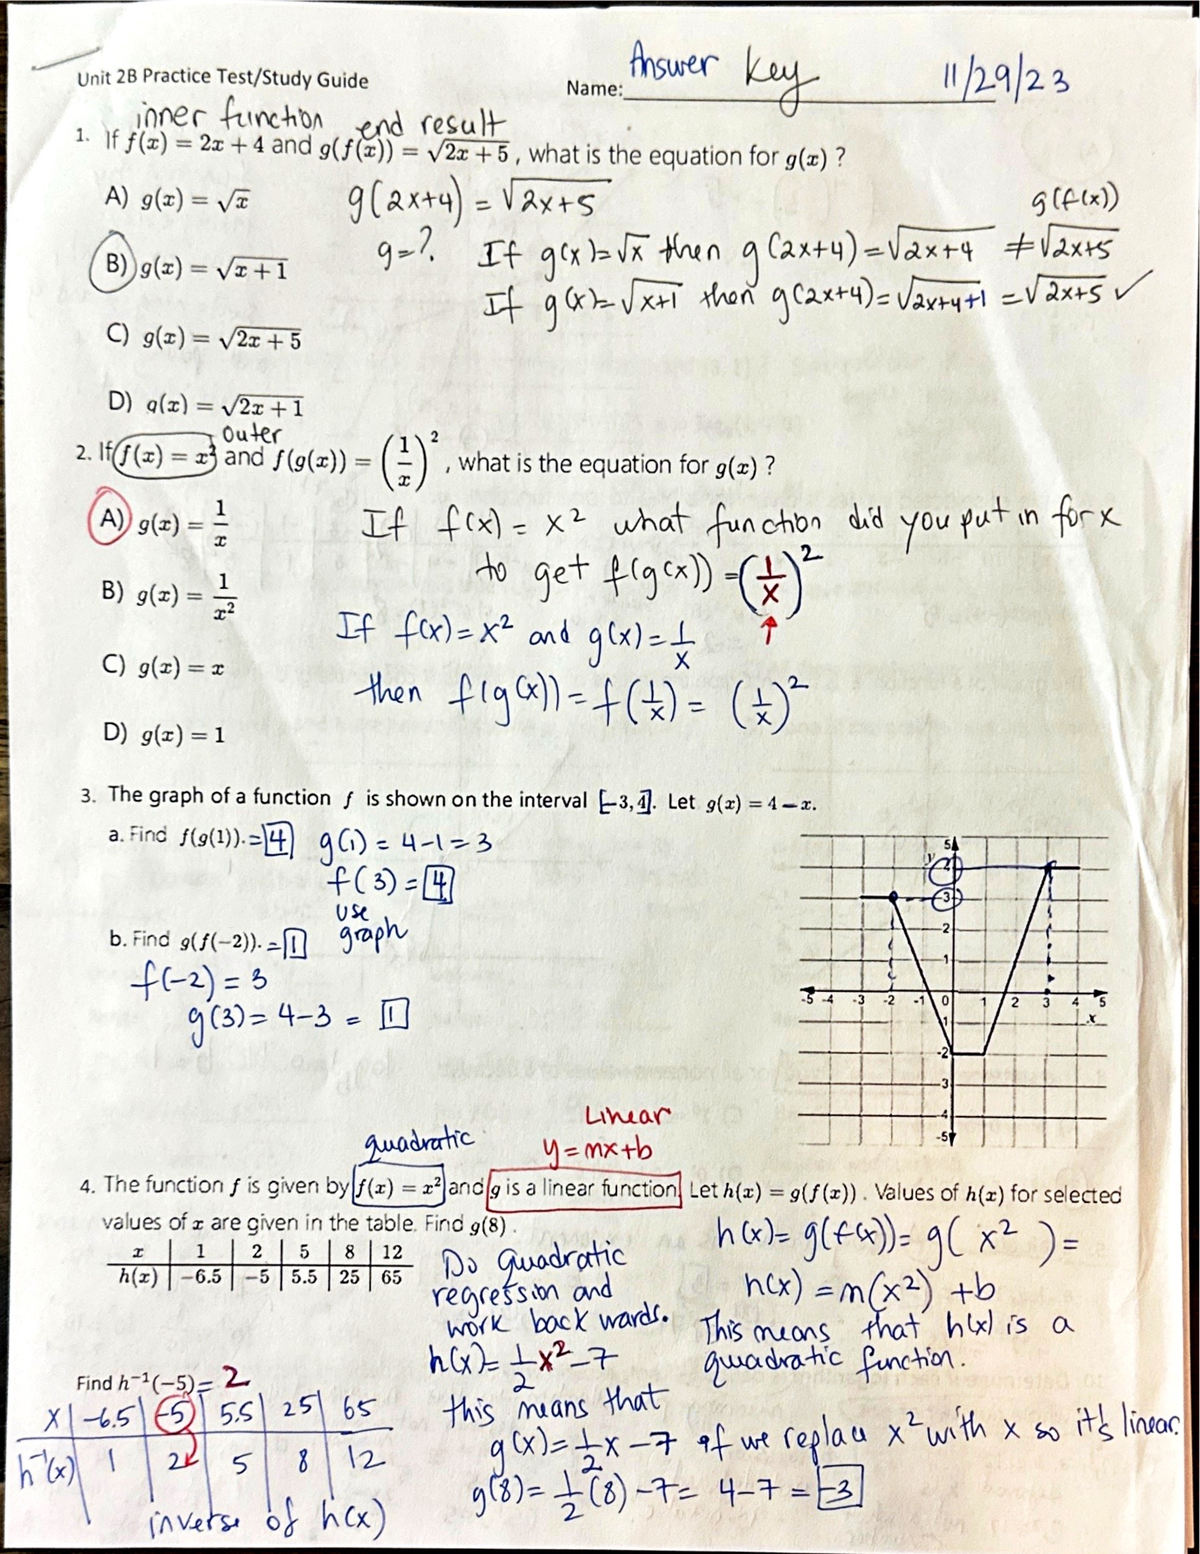 Unit 2B Practice Test/Study Guide
Name: Answer Key 11/29/23
inner function end result
1. If f(x) = 2x + 4 and g(f(x)) = √(2x + 5), what is the equation for g(x) ?
A) g(x) = √x
g(2x+4) = √(2x+5)
g(f(x))
g=?. If g(x)=√x then g(2x+4)=√(2x+4) ≠√(2x+5)
B) g(x) = √(x + 1)
If g(x)=√(x+1) then g(2x+4)=√(2x+4+1) =√(2x+5) ✓
C) g(x) = √(2x + 5)
D) g(x) = √(2x + 1)
outer
2. If f(x) = x² and f(g(x)) = (1/x)², what is the equation for g(x) ?
A) g(x) = 1/x
If f(x) = x² what function did you put in for x
to get f(g(x)) =(1/x)²
B) g(x) = 1/x²
If f(x)=x² and g(x)=1/x
C) g(x) = x
then f(g(x))=f(1/x)= (1/x)²
D) g(x) = 1
3. The graph of a function f is shown on the interval [-3,4]. Let g(x) = 4 − x.
a. Find f(g(1)).=4 g(1) = 4-1=3
f(3)=4
use
graph
b. Find g(f(−2)). =1
f(-2) = 3
g(3)= 4-3 = 1
5
y
4
3
2
1
-5 -4 -3 -2 -1 0 1 2 3 4 5
x
-1
-2
-3
-4
-5
Linear
quadratic y=mx+b
4. The function f is given by f(x) = x² and g is a linear function. Let h(x) = g(f(x)) . Values of h(x) for selected
values of x are given in the table. Find g(8) .
x 1 2 5 8 12
h(x) −6.5 −5 5.5 25 65
h(x)= g(f(x))= g( x² ) =
h(x) =m(x²) +b
This means that h(x) is a
quadratic function.
Do quadratic
regression and
work back wards.
h(x)=1/2x²-7
this means that
g(x)=1/2x-7 if we replace x² with x so it's linear.
g(8)= 1/2(8)-7= 4-7 = -3
Find h⁻¹(−5)= 2
x -6.5 -5 5.5 25 65
h⁻¹(x) 1 2 5 8 12
inverse of h(x)